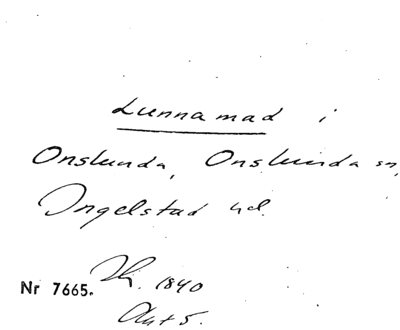 Lunnamad i
Onslunda, Onslunda sn,
Ingelstad hd.
1840
Nr 7665.
Akt 5.